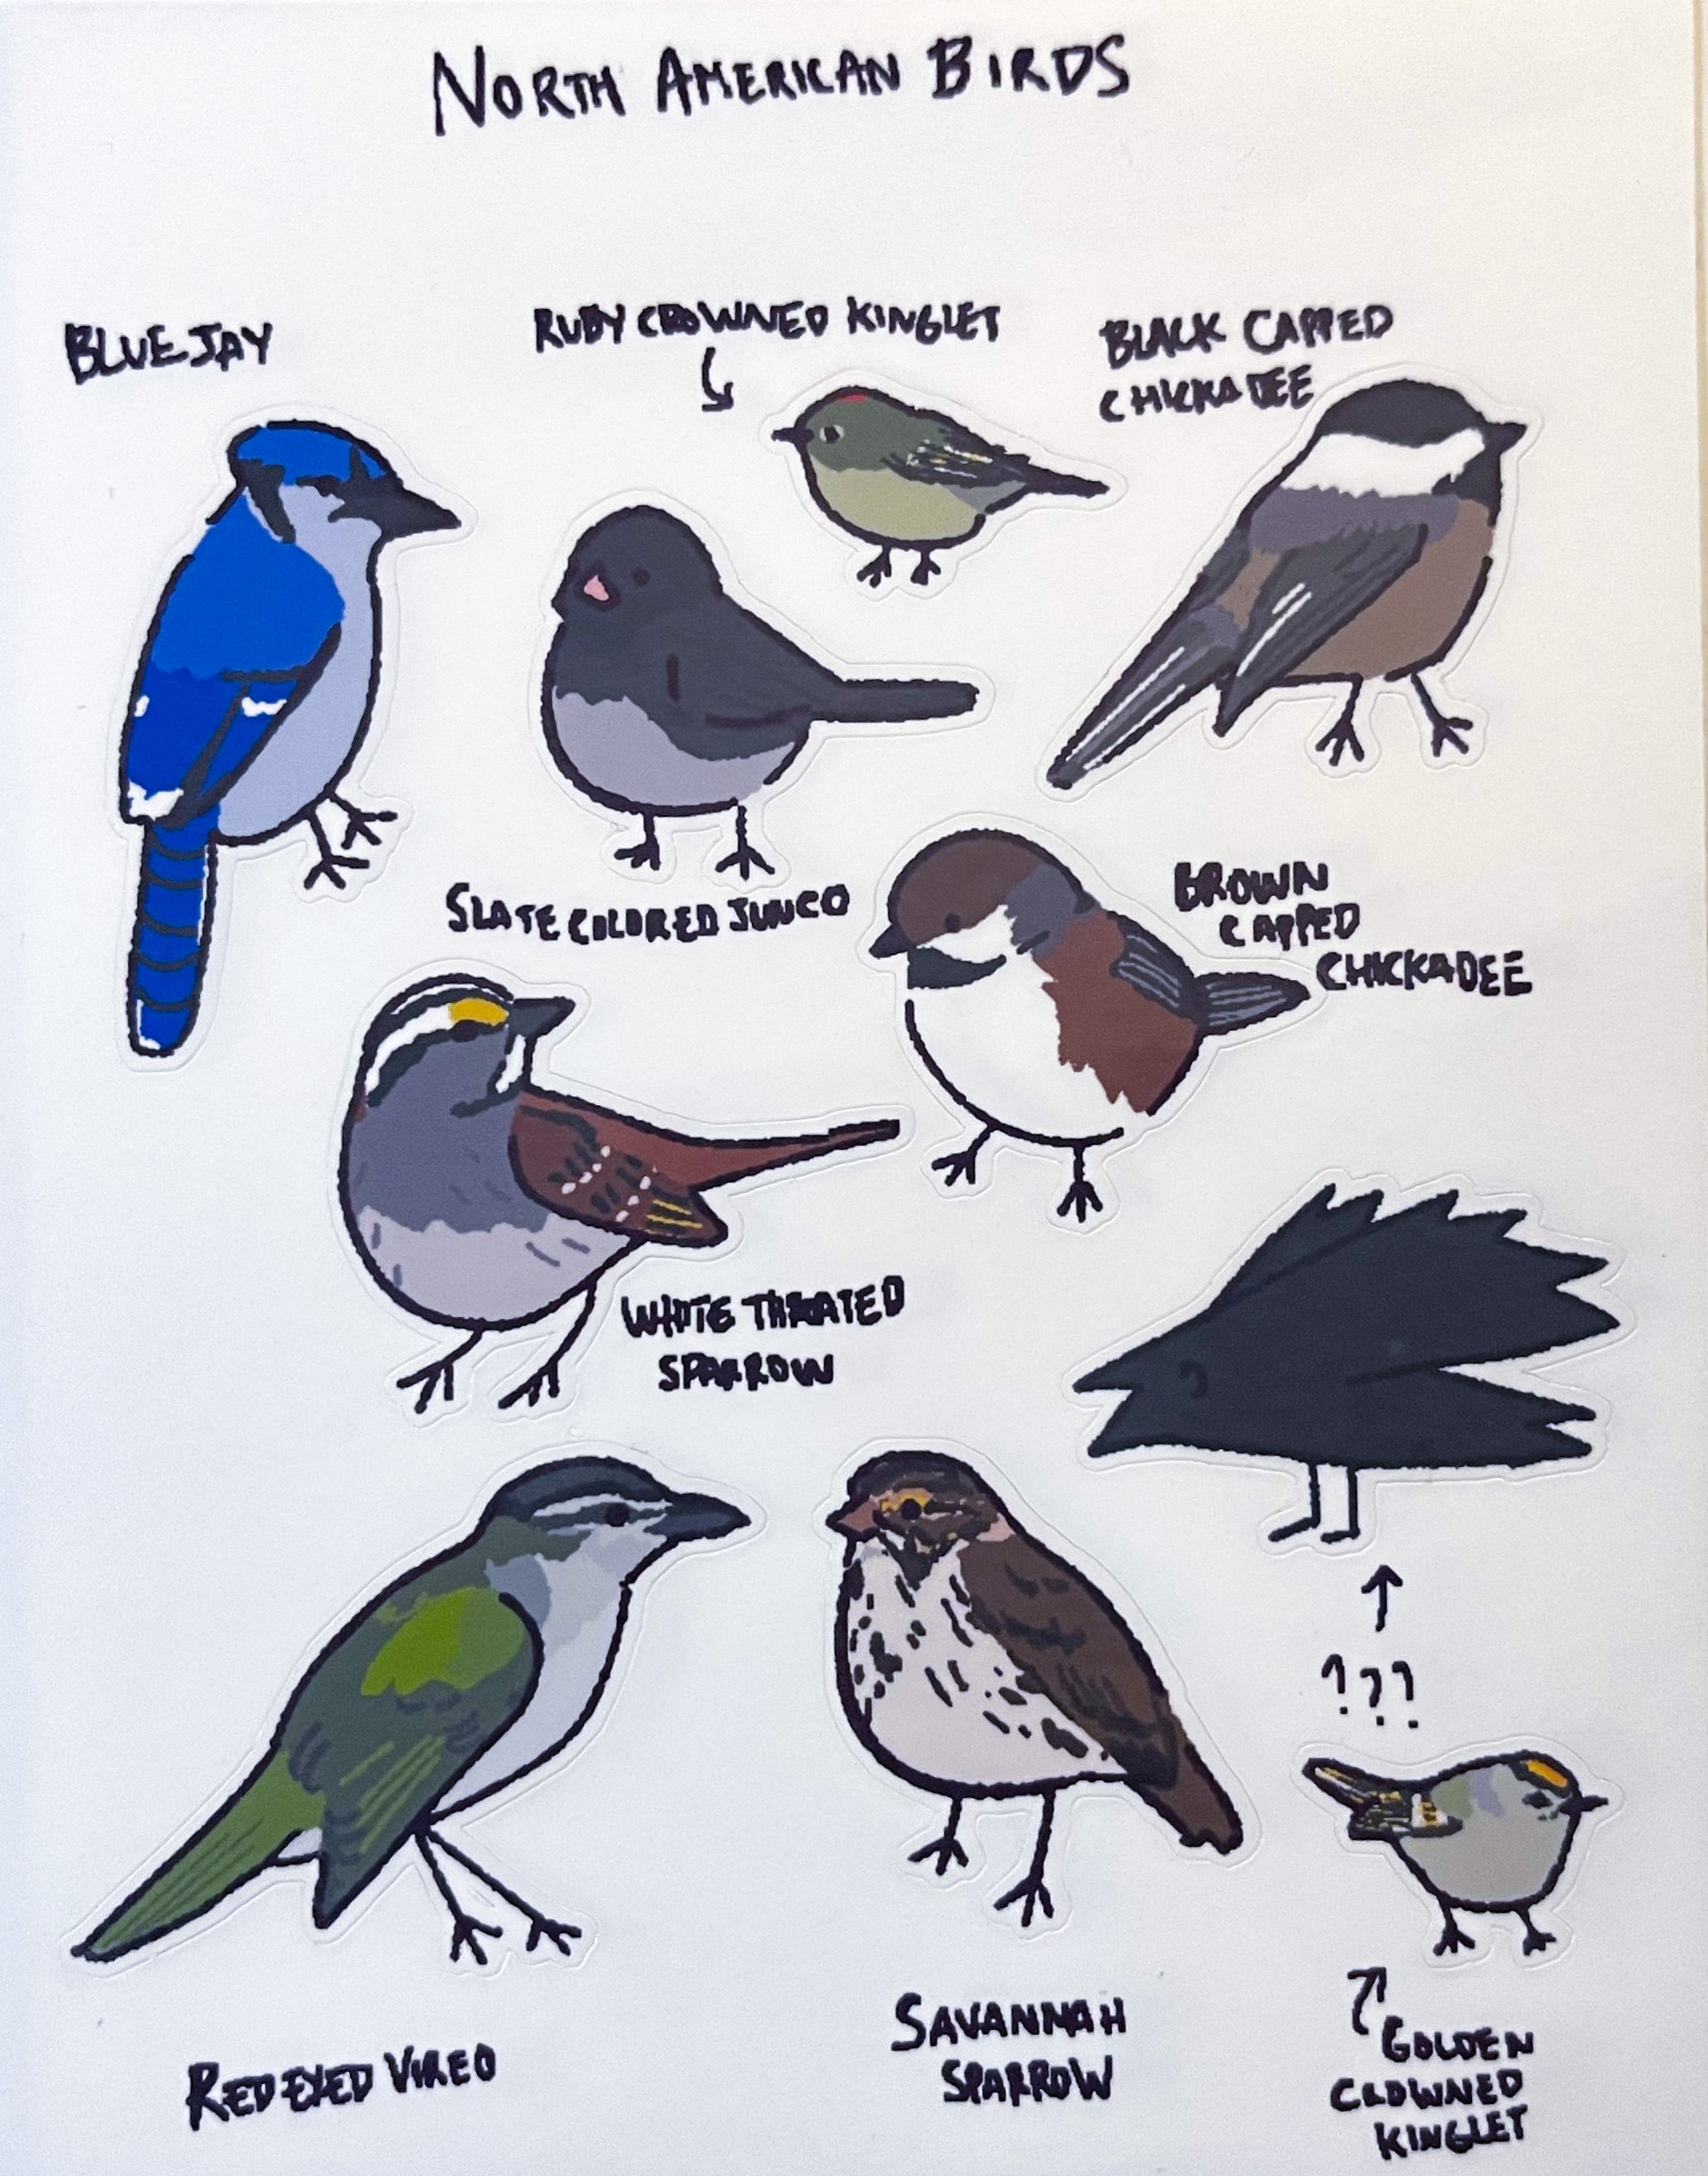 NORTH AMERICAN BIRDS
BLUE JAY
RUBY CROWNED KINGLET
BLACK CAPPED
CHICKADEE
SLATE COLORED JUNCO
BROWN
CAPPED
CHICKADEE
WHITE THROATED
SPARROW
???
RED EYED VIREO
SAVANNAH
SPARROW
GOLDEN
CROWNED
KINGLET